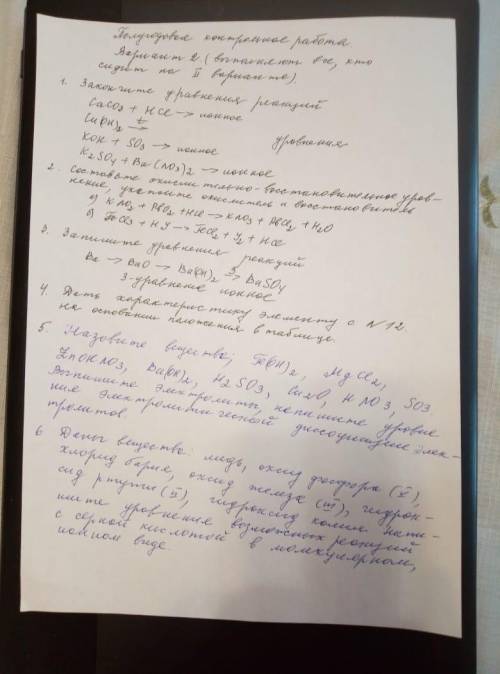 Полугодовая контрольная работа.
Вариант 2 (выполняют все, кто
сидит на II варианте).
1. Закончите уравнения реакций
CaCO3 + HCl → ионное
Cu(OH)2 t→
уравнения
KOH + SO3 → ионное
K2SO4 + Ba(NO3)2 → ионное
2. Составьте окислительно-восстановительное урав-
нение, укажите окислитель и восстановитель
а) KNO2 + PbO2 + HCl → KNO3 + PbCl2 + H2O
б) FeCl3 + HJ → FeCl2 + J2 + HCl
3. Запишите уравнения реакций
Ba → BaO → Ba(OH)2 3→ BaSO4
3-уравнение ионное
4. Дать характеристику элементу с N 12.
на основании положения в таблице.
5. Назовите вещества; Fe(OH)2, MgCl2,
ZnOHNO3, Ba(OH)2, H2SO3, Cu2O, HNO3, SO3
Выпишите электролиты, напишите уравне
ния электролитической диссоциации элек-
тролитов
6. Даны вещества: медь, оксид фосфора (V),
хлорид бария, оксид железа (III), гидрок-
сид ртути (II), гидроксид калия напи-
шите уравнения возможных реакций
с серной кислотой в молекулярном,
ионном виде.